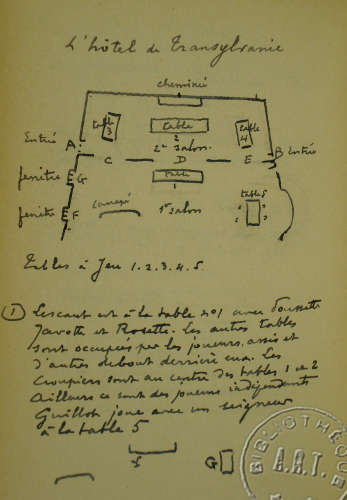 L'hôtel de Transylvanie
cheminée
table
3
table
2
table
4
Entrée
A
2e salon
B Entrée
C
D
E
fenêtre
G
table
1
fenêtre
F
canapé
1er salon
table 5
Tables à Jeu 1. 2. 3. 4. 5.
1 Lescaut est à la table no 1 avec Poussette
Javotte et Rosette. Les autres tables
sont occupées par les joueurs, assis et
d'autres debout derrière eux. Les
Croupiers sont au centre des tables 1 et 2
Ailleurs ce sont des joueurs indépendants
Guillot joue avec un seigneur
à la table 5
G
BIBLIOTHÈQUE
A.R.T.